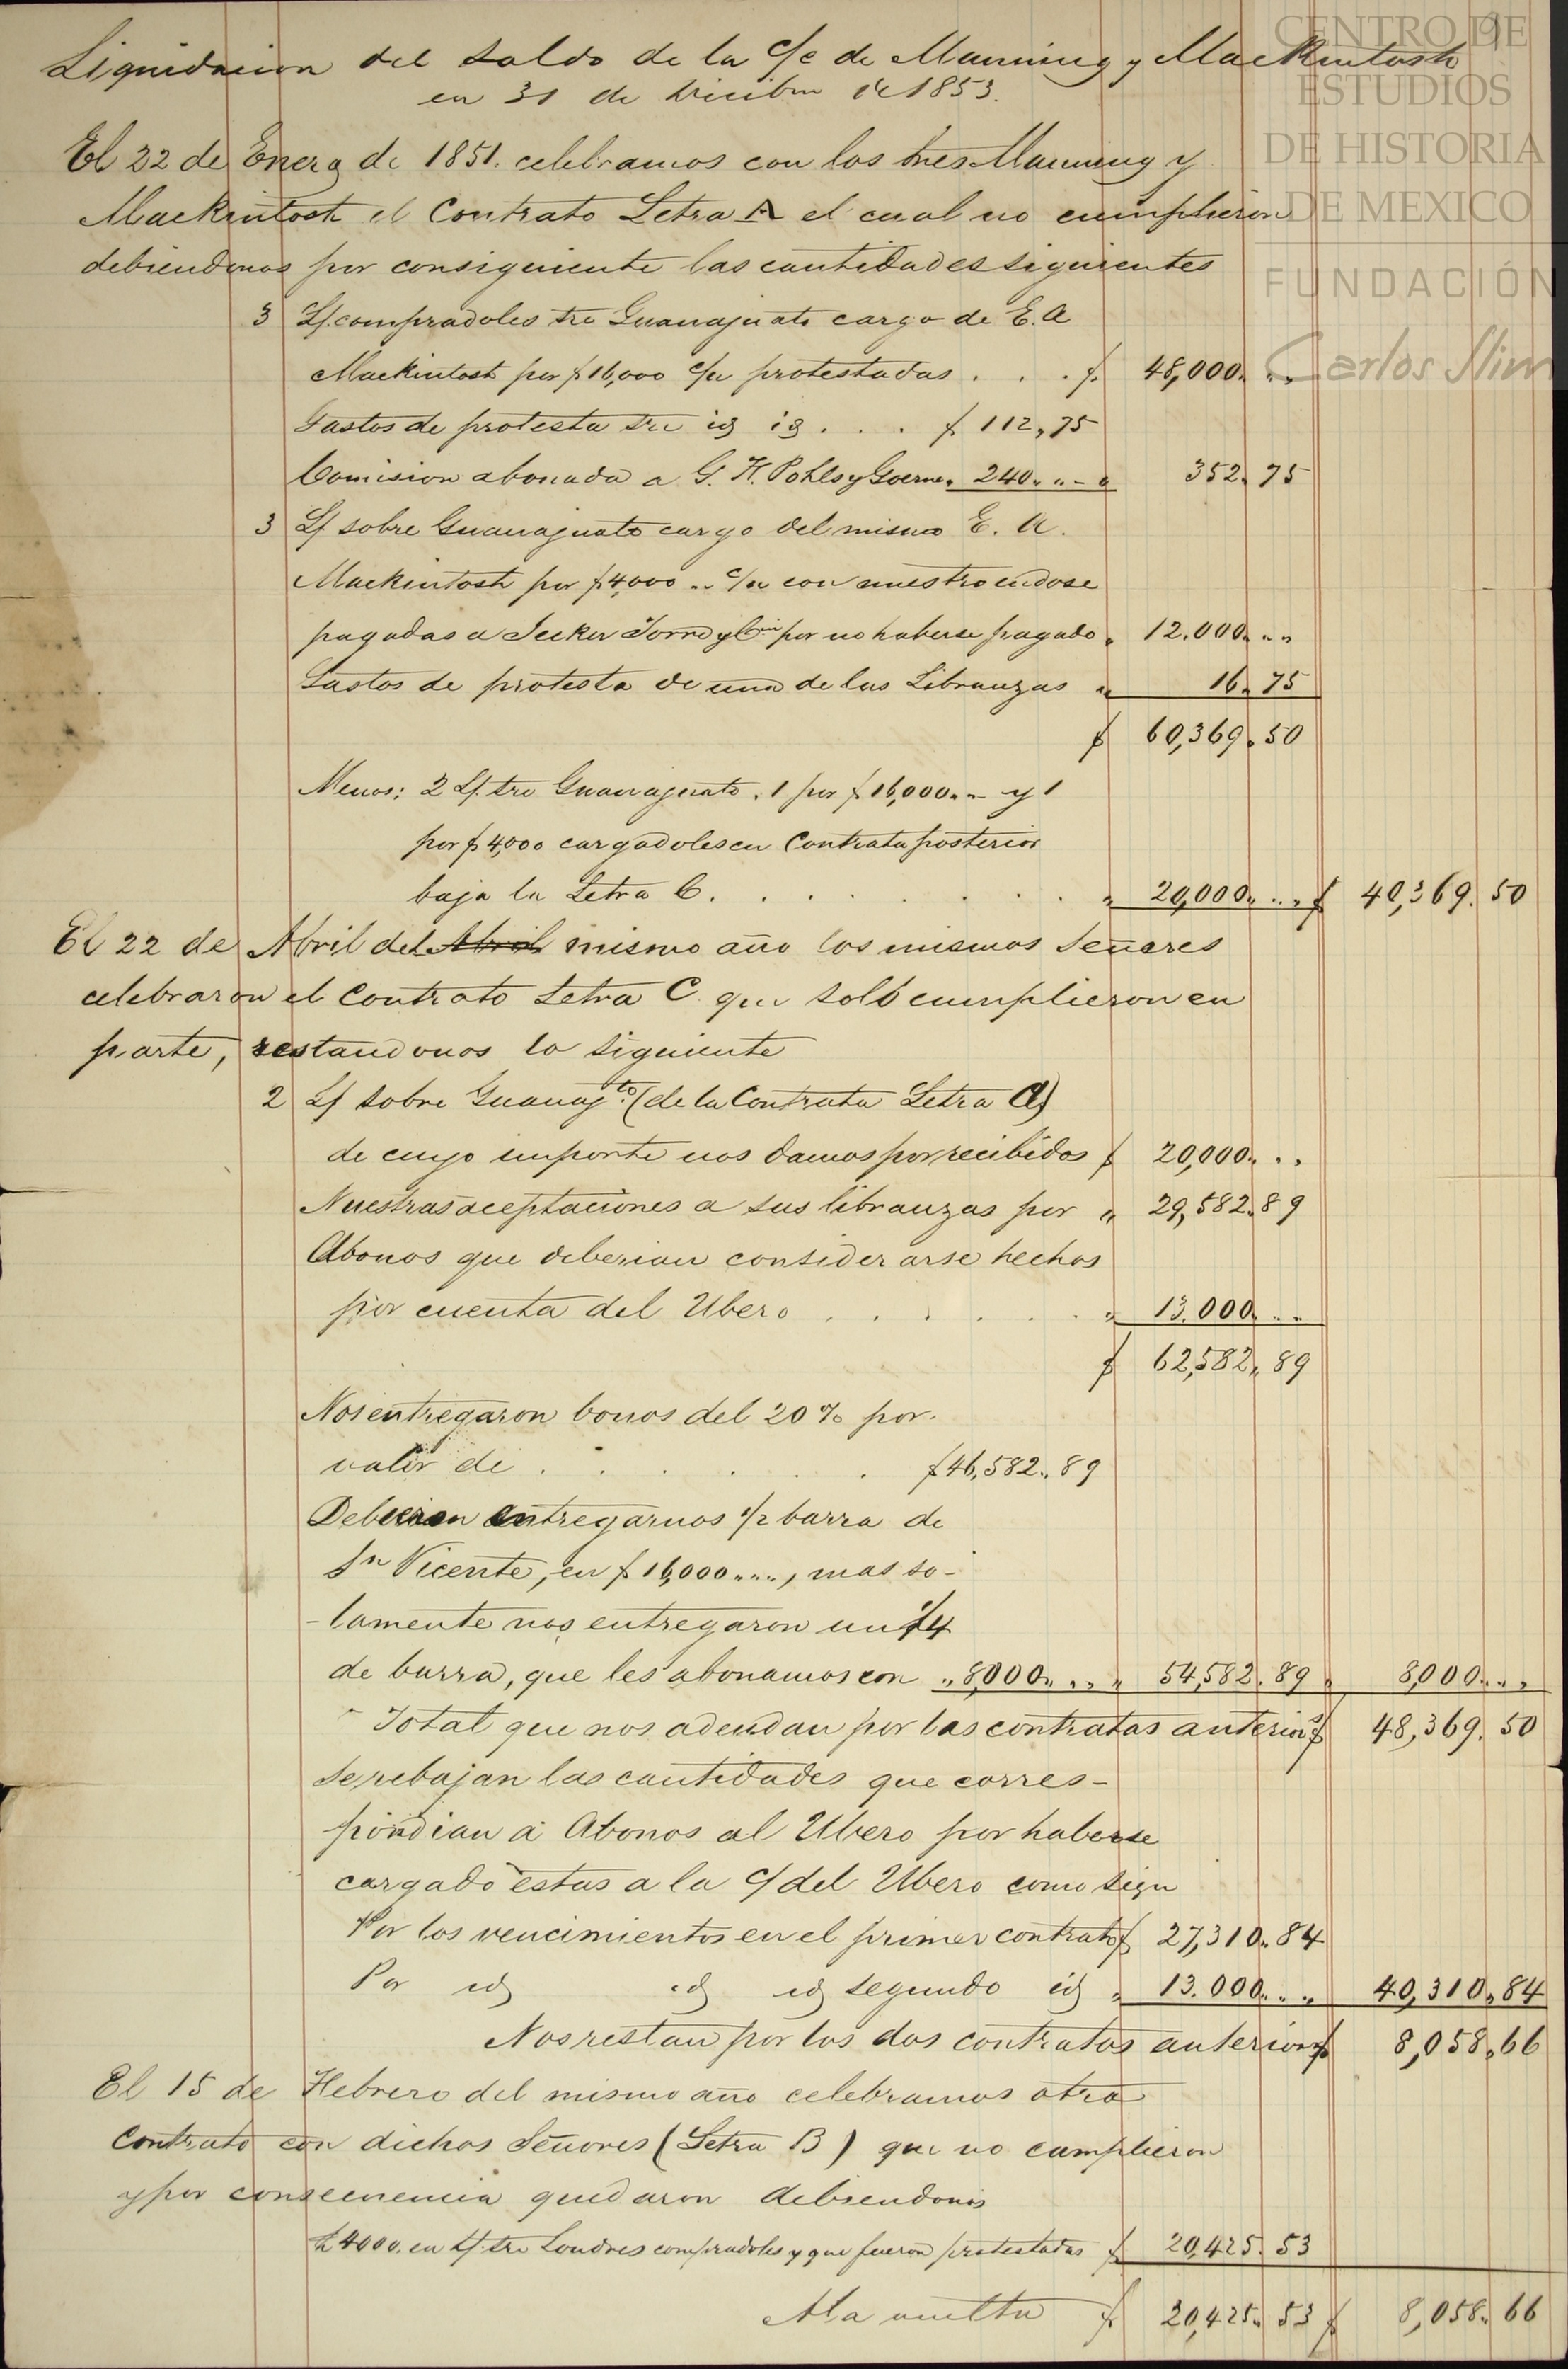 CENTRO DE
ESTUDIOS
DE HISTORIA
DE MEXICO
FUNDACIÓN
Carlos Slim
Liquidacion del Saldo de la c/c de Manning y MacKintosh
en 31 de Dicibre de 1853.
El 22 de Enero de 1851. celebramos con los Sres Manning y
MacKintosh el Contrato Letra A el cual no cumplieron
debiendonos por consiguiente las cantidades siguientes
3 Lf. compradoles sre Guanajuato cargo de E. A
MacKintosh por $16,000 c/u protestadas . . . $ 48,000.. ..
Gastos de protesta sre id id . . . $ 112,,75
Comision abonada a G. H. Pohls y Goerne. 240.. .. 352,,75
3 Lf sobre Guanajuato cargo del mismo E. A.
MacKintosh por $4,000 .. c/u con nuestro endose
pagadas a Jecker Torre y Cia por no haberse pagado " 12.000.. ..
Gastos de protesta de una de las Libranzas " 16,,75
$ 60,369.50
Menos: 2 Lf. sre Guanajuato. 1 por $16,000.. .. y 1
por $4,000 cargadoles en Contrata posterior
baja la Letra C. . . . . . . . " 20,000.. .. $ 40,369.50
El 22 de Abril del Abril mismo año los mismos Señores
celebraron el Contrato Letra C que solo cumplieron en
parte, restandonos lo siguiente
2 Lf sobre Guanajto. (de la Contrata Letra A)
de cuyo importe nos damos por recibidos $ 20,000.. ..
Nuestras aceptaciones a sus libranzas por " 29,582.89
Abonos que deberian considerarse hechos
por cuenta del Ubero . . . . . . " 13.000.. ..
$ 62,582,,89
Nos entregaron bonos del 20% por
valor de . . . . . . $46,582,,89
Debieron entregarnos 1/2 barra de
Sn Vicente, en $16,000.. .., mas so-
-lamente nos entregaron un 1/4
de barra, que les abonamos con " 8,000.. .. " 54,582.89 " 8,000.. ..
Total que nos adeudan por las contratas anteriors $ 48,369.50
Se rebajan las cantidades que corres-
pondian á Abonos al Ubero por haberse
cargado estas a la c/ del Ubero como sigue
Por los vencimientos en el primer contrato $ 27,310,,84
Por id id id segundo id " 13.000.. .. 40,310,,84
Nos restan por los dos contratos anteriores $ 8,058,,66
El 15 de Febrero del mismo año celebramos otro
Contrato con dichos Señores (Letra B) que no cumplieron
y por consecuencia quedaron debiendonos
£4000. en Lf. sre Londres compradoles y que fueron protestadas $ 20,425.53
A la vuelta $ 20,425.53 $ 8,058.66